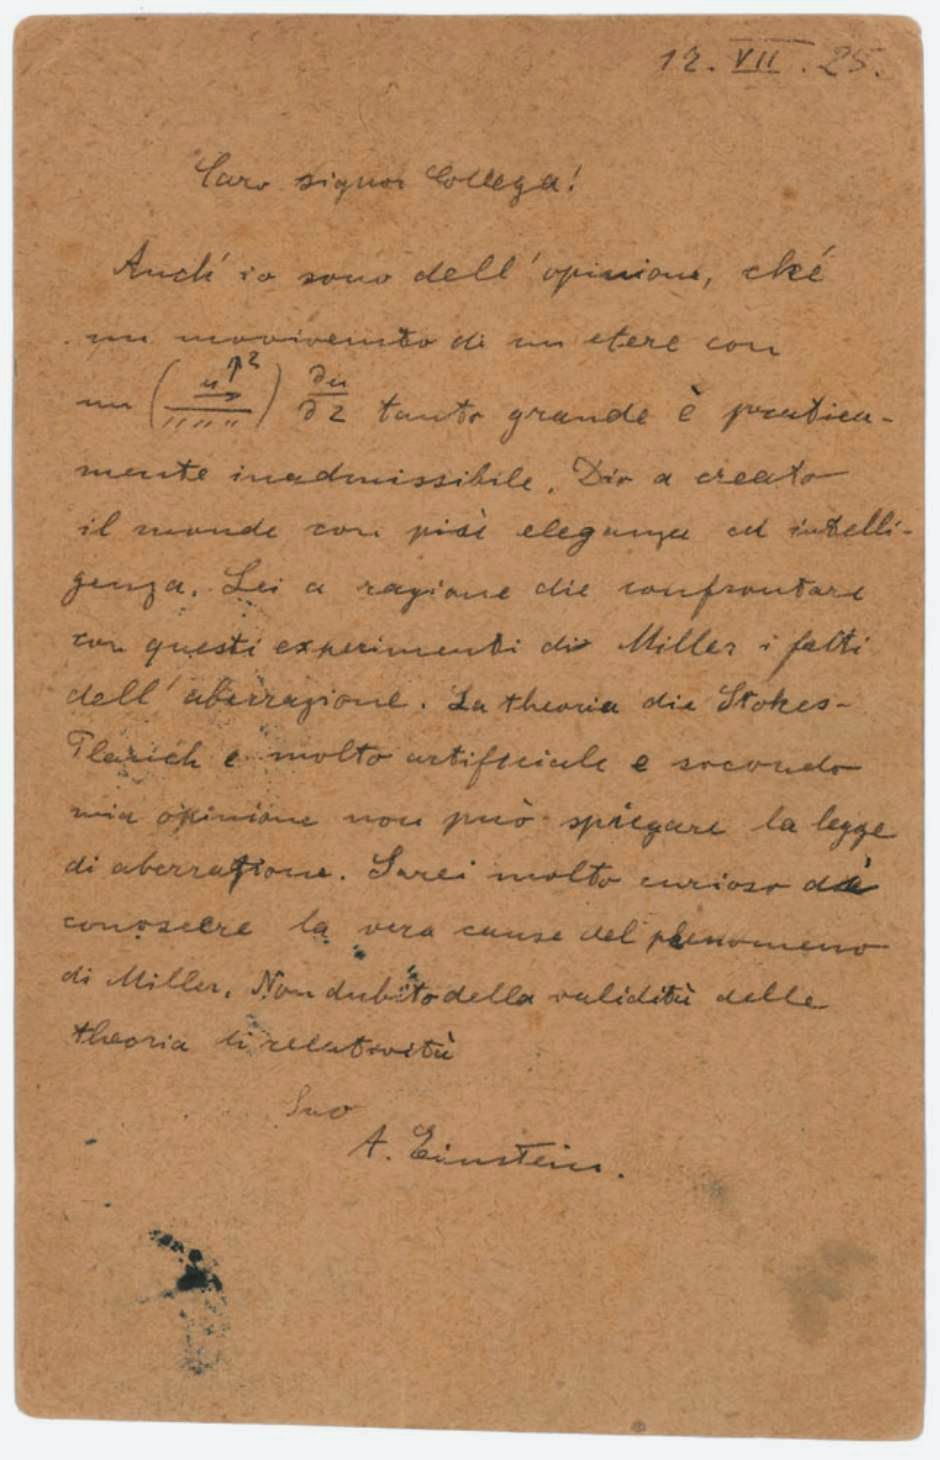 12. VII. 25.
Caro signor Collega!
Anch' io sono dell' opinione, ché
un movivemto di un etere con
un ∂u/∂z tanto grande è pratica-
mente inadmissibile. Dio a creato
il monde con più eleganza ed intelli-
genza. Lei a ragione die confrontare
con questi experimenti di Miller i fatti
dell' aberrazione. La theoria die Stokes-
Planck e molto artificiale e secondo
mia opinione non può spiegare la legge
di aberratione. Sarei molto curioso di
conoscere la vera cause del phenomeno
di Miller. Non dubito della validità delle
theoria di relatività
Suo
A. Einstein.